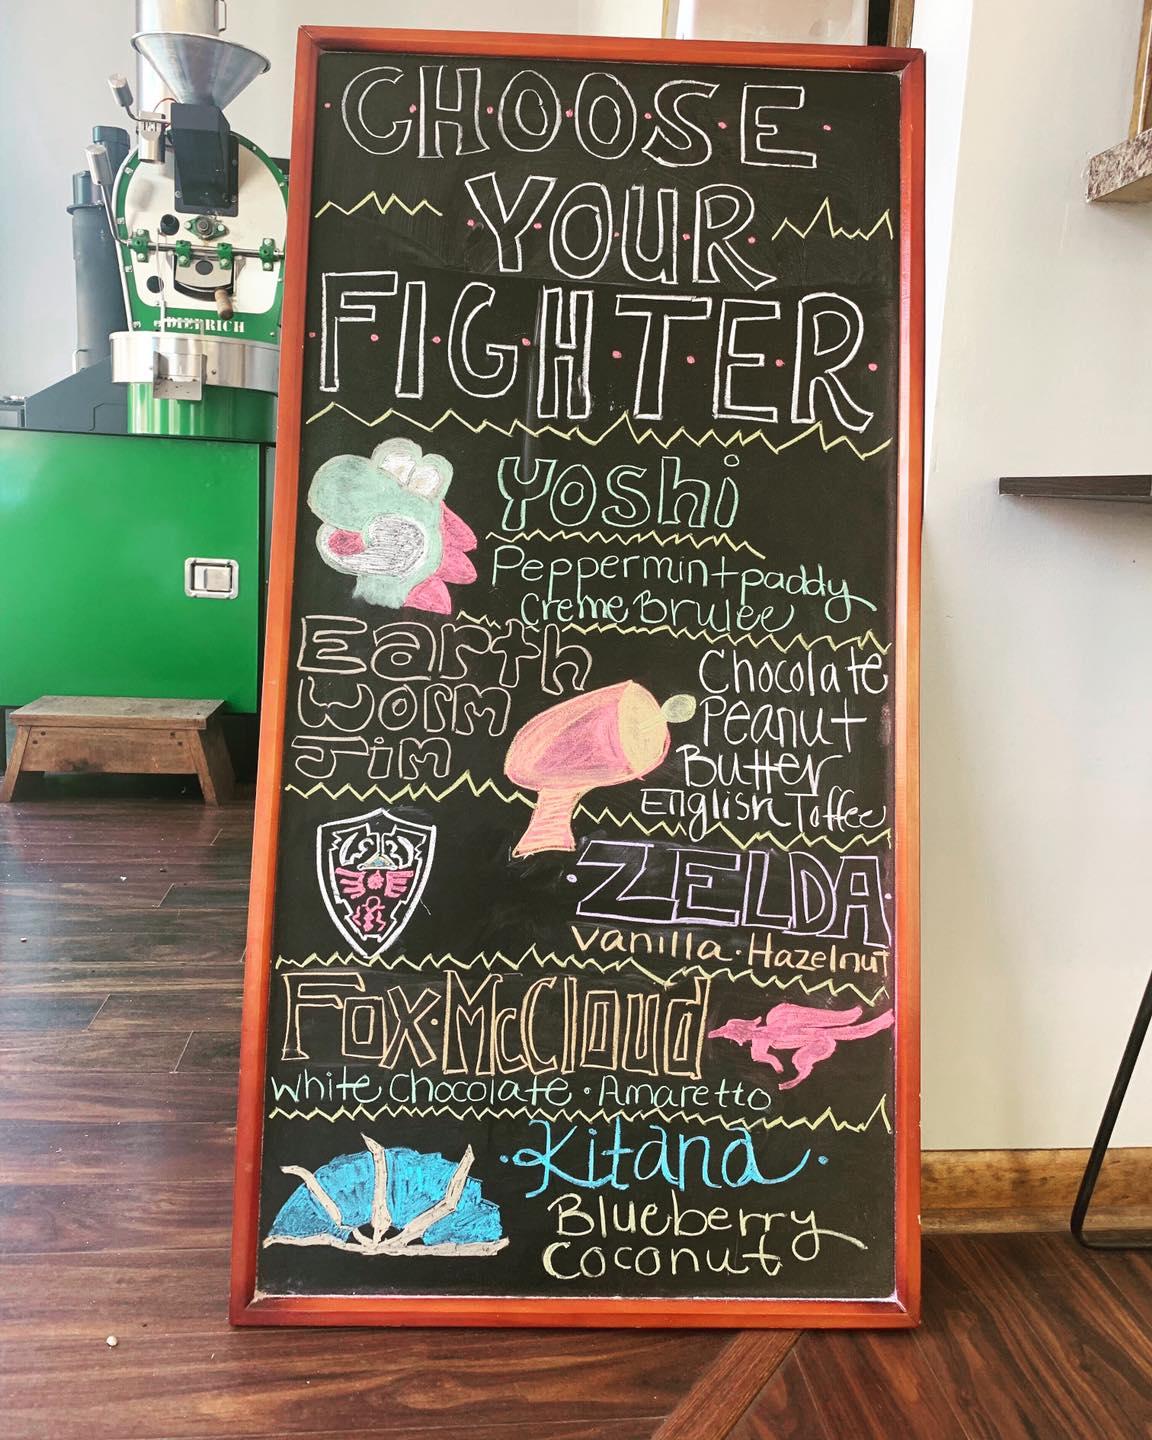 CHOOSE
YOUR
FIGHTER
DIETRICH
Yoshi
Peppermint paddy
Creme Brulee
Earth
Worm
Jim
Chocolate
Peanut
Butter
English Toffee
ZELDA
Vanilla · Hazelnut
Fox · McCloud
White Chocolate · Amaretto
· Kitana ·
Blueberry
Coconut